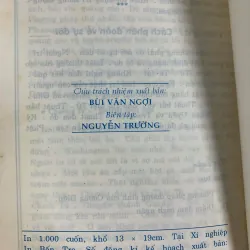 ***
Chịu trách nhiệm xuất bản:
BÙI VĂN NGỢI
Biên tập:
NGUYỄN TRƯỜNG
In 1.000 cuốn, khổ 13 × 19cm. Tại Xí nghiệp
In Bến Tre. Số đăng kí kế hoạch xuất bản